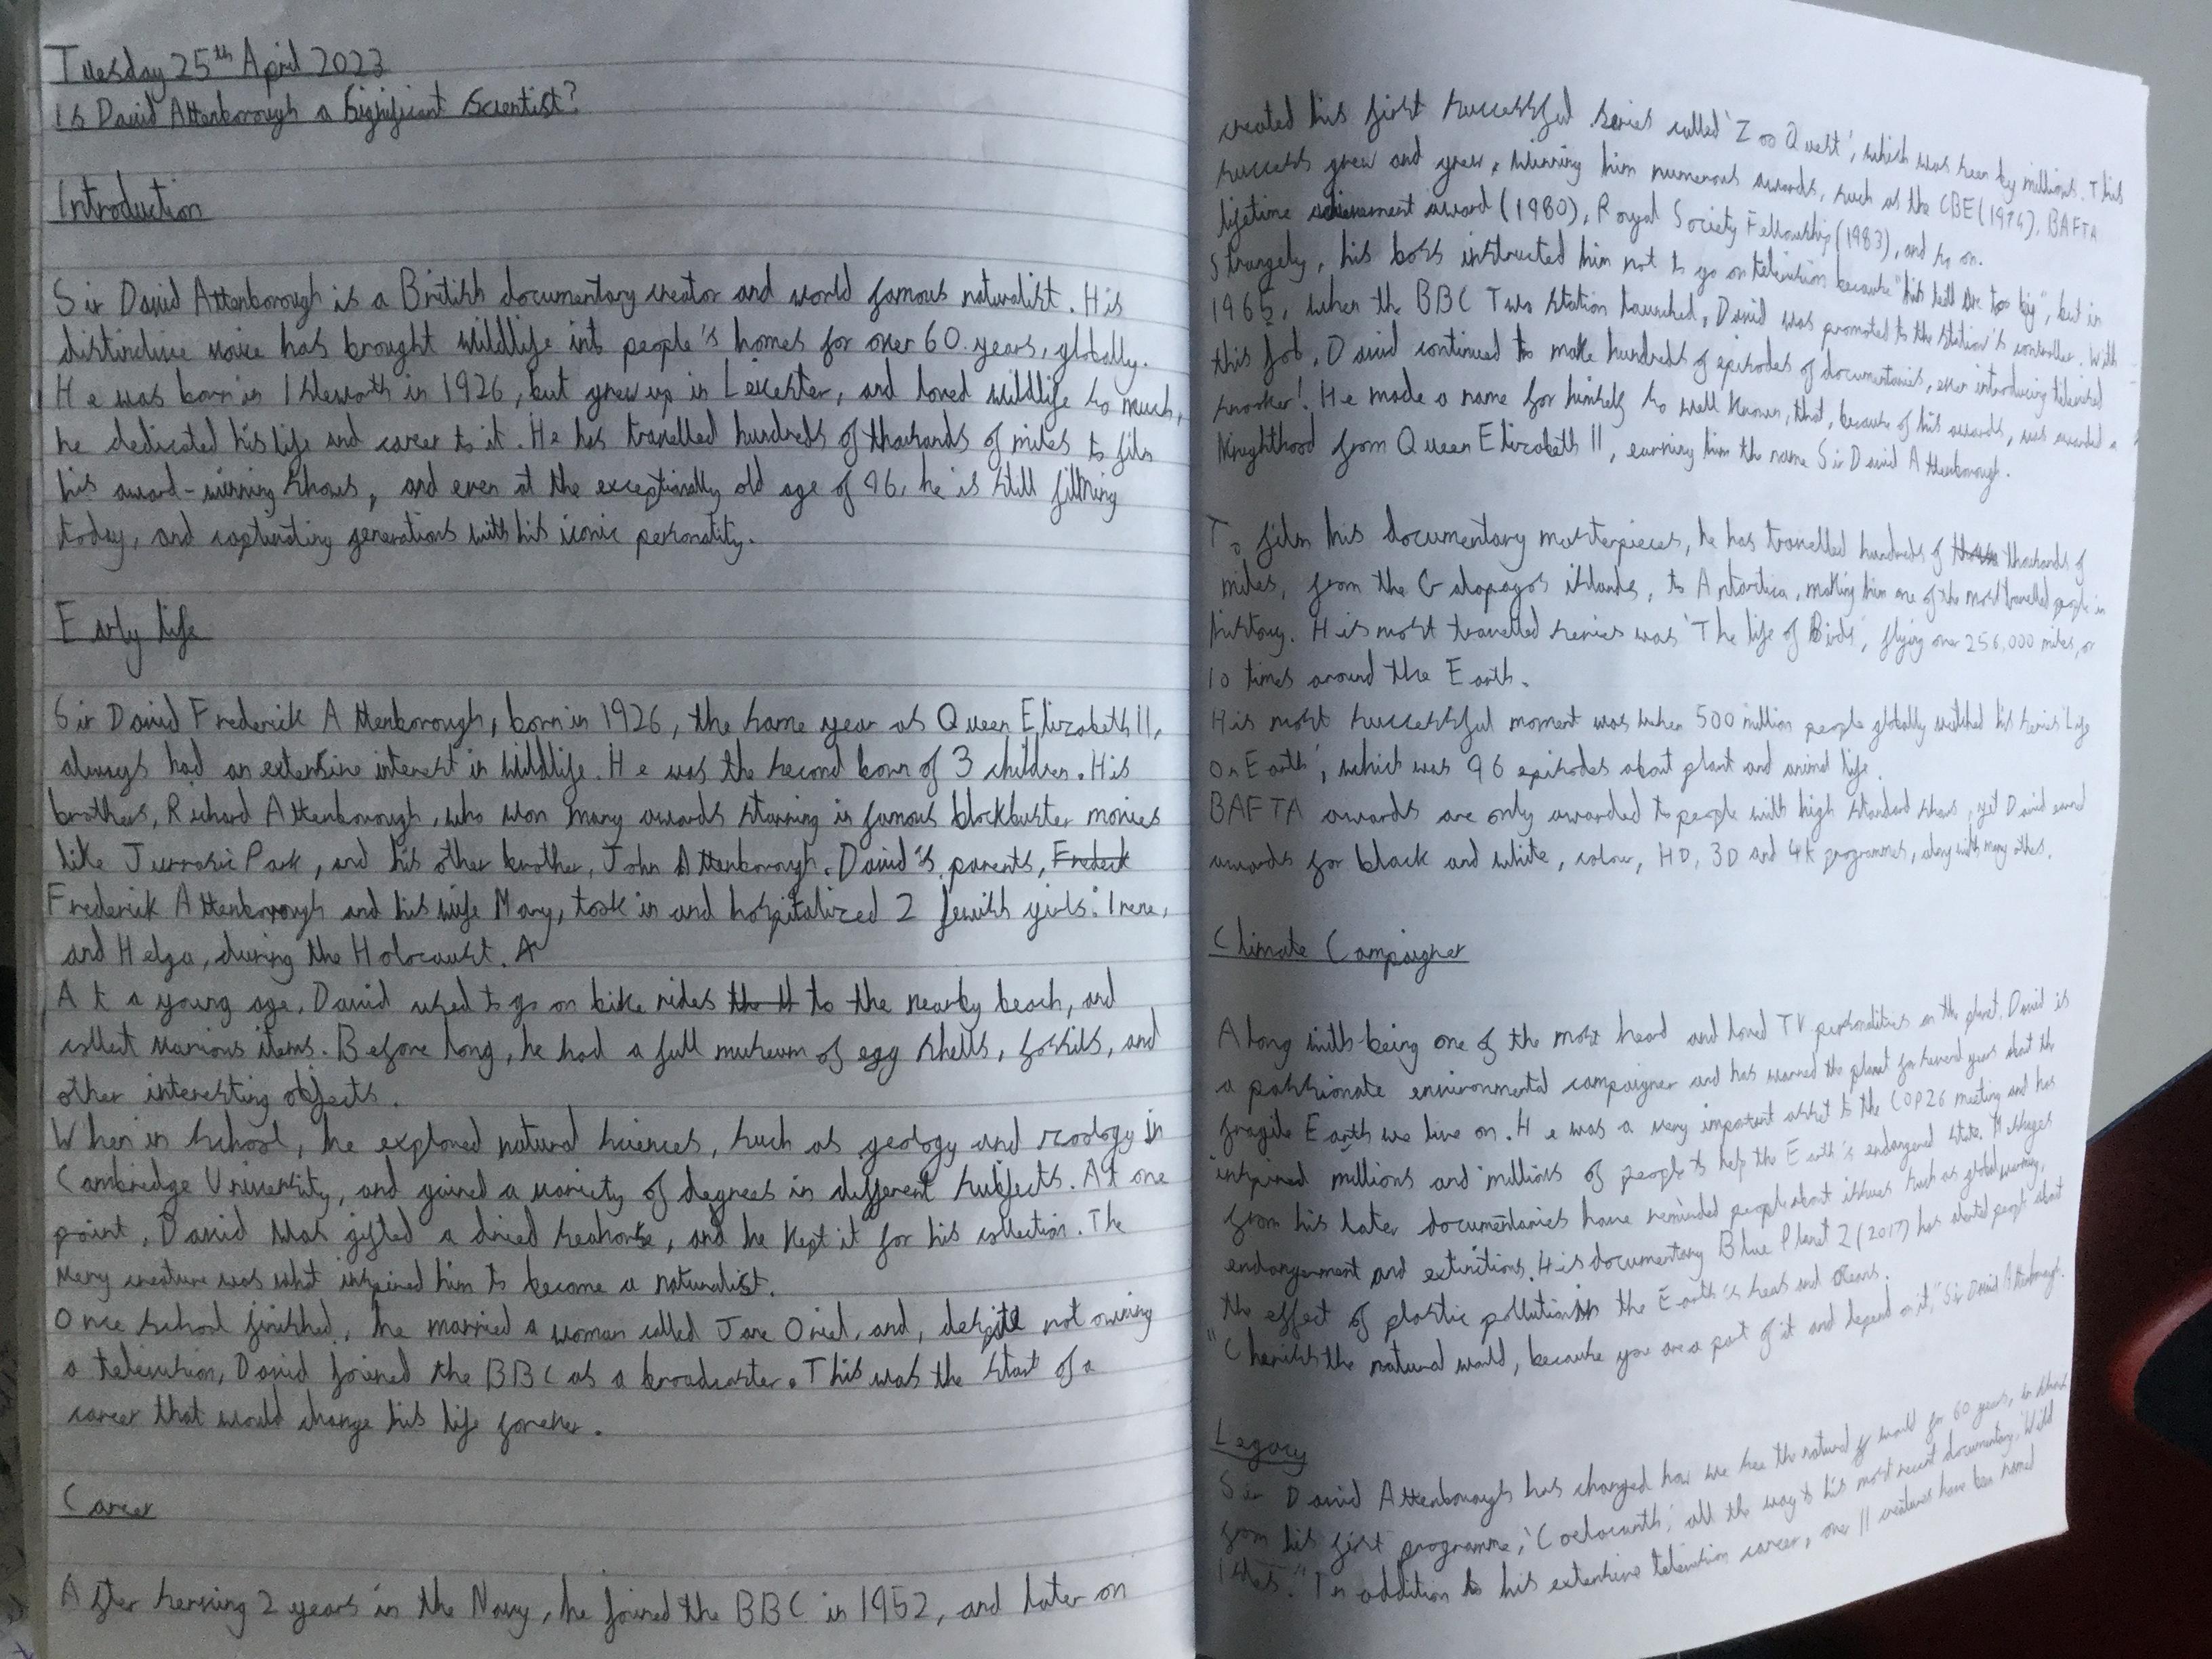 Tuesday 25th April 2023
Is David Attenborough a significant scientist?
Introduction
Sir David Attenborough is a British documentary creator and world famous naturalist. His
distinctive voice has brought wildlife into people's homes for over 60 years, globally.
He was born in Isleworth in 1926, but grew up in Leicester, and loved wildlife so much,
he dedicated his life and career to it. He has travelled hundreds of thousands of miles to film
his award-winning shows, and even at the exceptionally old age of 96, he is still filming
today, and captivating generations with his iconic personality.
Early life
Sir David Frederick Attenborough, born in 1926, the same year as Queen Elizabeth II,
always had an extensive interest in wildlife. He was the second born of 3 children. His
brothers, Richard Attenborough, who won many awards starring in famous blockbuster movies
like Jurrasic Park, and his other brother, John Attenborough. David's parents, Fredeck
Frederick Attenborough and his wife Mary, took in and hospitalized 2 Jewish girls: Irene,
and Helga, during the Holocaust. A
At a young age, David used to go on bike rides to the nearby beach, and
collect various items. Before long, he had a full museum of egg shells, fossils, and
other interesting objects.
When in school, he explored natural sciences, such as geology and zoology in
Cambridge University, and gained a variety of degrees in different subjects. At one
point, David was gifted a dried seahorse, and he kept it for his collection. The
very creature was what inspired him to become a naturalist.
Once school finished, he married a woman called Jane Oriel, and, despite not owning
a television, David joined the BBC as a broadcaster. This was the start of a
career that would change his life forever.
Career
After serving 2 years in the Navy, he joined the BBC in 1952, and later on
created his first successful series called 'Zoo Quest', which was seen by millions. This
success grew and grew, winning him numerous awards, such as the CBE (1974), BAFTA
lifetime achievement award (1980), Royal Society Fellowship (1983), and so on.
Strangely, his boss instructed him not to go on television because "his teeth are too big", but in
1965, when the BBC Two station launched, David was promoted to the station's controller. With
this job, David continued to make hundreds of episodes of documentaries, even introducing televised
snooker! He made a name for himself so well known, that, because of his awards, was awarded a
Knighthood from Queen Elizabeth II, earning him the name Sir David Attenborough.
To film his documentary masterpieces, he has travelled hundreds of thousands of
miles, from the Galapagos islands, to Antartica, making him one of the most travelled people in
history. His most travelled series was 'The life of Birds', flying over 256,000 miles, or
10 times around the Earth.
His most successful moment was when 500 million people globally watched his series 'Life
On Earth', which was 96 episodes about plant and animal life.
BAFTA awards are only awarded to people with high standard shows, yet David earned
awards for black and white, colour, HD, 3D and 4K programmes, along with many others.
Climate Campaigner
Along with being one of the most heard and loved TV personalities on the planet, David is
a passionate environmental campaigner and has warned the planet for several years about the
fragile Earth we live on. He was a very important asset to the COP26 meeting and has
inspired millions and millions of people to help the Earth's endangered state. Messages
from his later documentaries have reminded people about issues such as global warming,
endangerment and extinctions. His documentary Blue Planet 2 (2017) has alerted people about
the effect of plastic pollution in the Earth's seas and oceans.
"Cherish the natural world, because you are a part of it and depend on it," Sir David Attenborough.
Legacy
Sir David Attenborough has changed how we see the natural world for 60 years, to
from his first programme, 'Coelacanth', all the way to his most recent documentary, 'Wild
Isles.' In addition to his extensive television career, over 11 creatures have been named